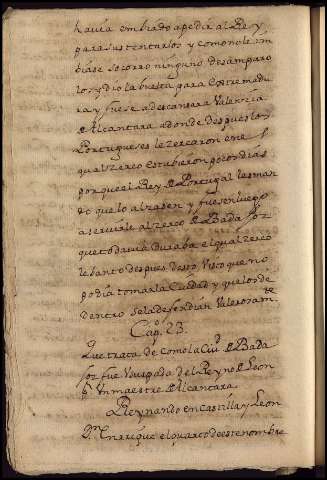 havia embiado apedir al Rey
para sustentarlos y como no le im
biase socorro ninguno desamparo
los y dio la buelta para Extremadu
ra y fuese a descansar a Valencia
de Alcantara a donde despues los
Portugueses le zercaron en el
qual zerco estubieron pocos dias
porque el Rey de Portugal les man
do que lo alzasen y fuesen luego
a servirle al zerco de Badajoz
que todavia duraba el qual zerco
lebanto despues de seo Visto que no
podia tomar la Ciudad y que los de
dentro se la defendian Valerosamte
Capo. 23.
Que trata de Como la Ciud de Bada
joz fue Usurpada del Reyno de Leon
pr Un maestre de Alcantara
Reynando en Castilla y Leon
Dn Enrrique el quarto de este nombre